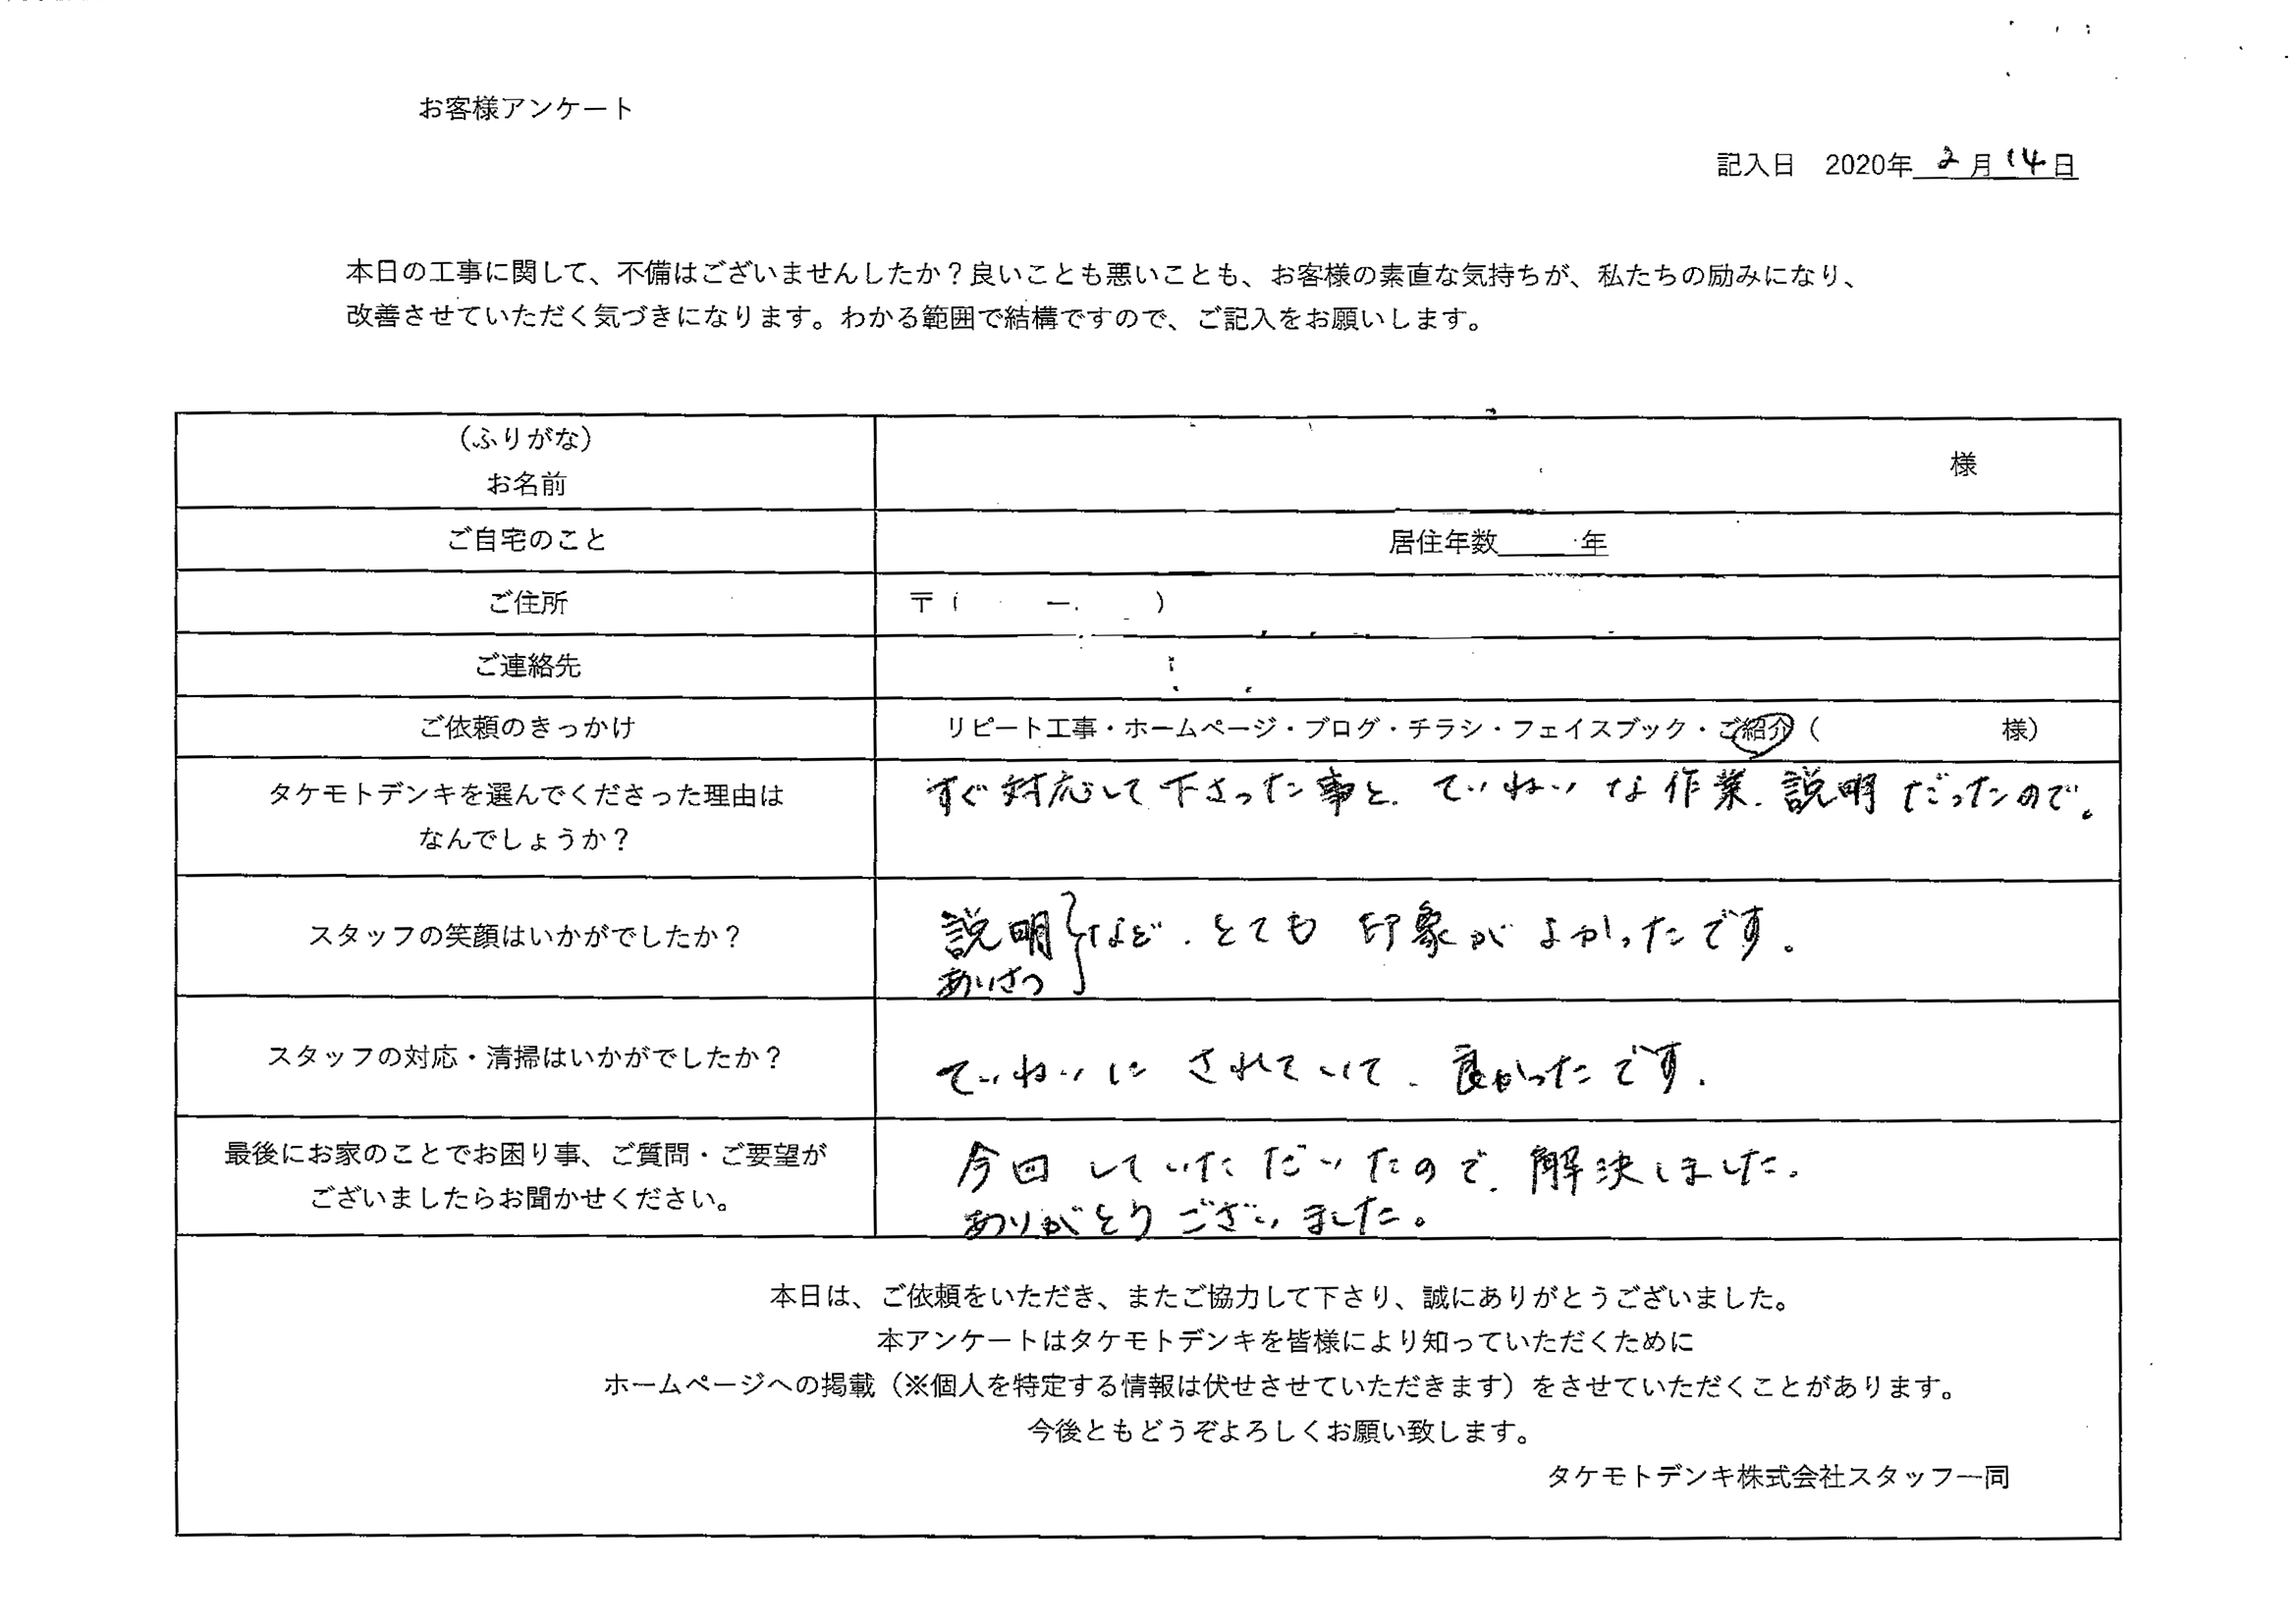 お客様アンケート
記入日 2020年 2月14日
本日の工事に関して、不備はございませんしたか？良いことも悪いことも、お客様の素直な気持ちが、私たちの励みになり、
改善させていただく気づきになります。わかる範囲で結構ですので、ご記入をお願いします。
（ふりがな）
お名前
様
ご自宅のこと
居住年数 年
ご住所
〒（ ー ）
ご連絡先
ご依頼のきっかけ
リピート工事・ホームページ・ブログ・チラシ・フェイスブック・ご紹介（ 様）
タケモトデンキを選んでくださった理由は
なんでしょうか？
すぐ対応して下さった事と、ていねいな作業、説明だったので。
スタッフの笑顔はいかがでしたか？
説明
あいさつ
など、とても印象がよかったです。
スタッフの対応・清掃はいかがでしたか？
ていねいにされていて、良かったです。
最後にお家のことでお困り事、ご質問・ご要望が
ございましたらお聞かせください。
今回していただいたので、解決しました。
ありがとうございました。
本日は、ご依頼をいただき、またご協力して下さり、誠にありがとうございました。
本アンケートはタケモトデンキを皆様により知っていただくために
ホームページへの掲載（※個人を特定する情報は伏せさせていただきます）をさせていただくことがあります。
今後ともどうぞよろしくお願い致します。
タケモトデンキ株式会社スタッフ一同